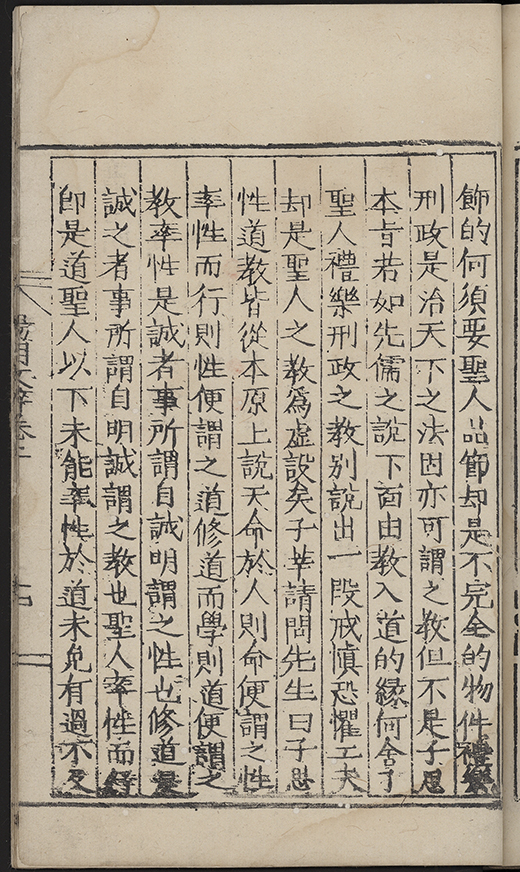 飾的何須要聖人品節却是不完全的物件禮樂
刑政是治天下之法固亦可謂之教但不是子思
本旨若如先儒之說下面由教入道的緣何舍了
聖人禮樂刑政之教别說出一段戒慎恐懼工夫
却是聖人之教為虚設矣子莘請問先生曰子思
性道教皆從本原上說天命於人則命便謂之性
率性而行則性便謂之道修道而學則道便謂之
教率性是誠者事所謂自誠明謂之性也修道是
誠之者事所謂自明誠謂之教也聖人率性而行
即是道聖人以下未能率性於道未免有過不及
陽明文粹卷